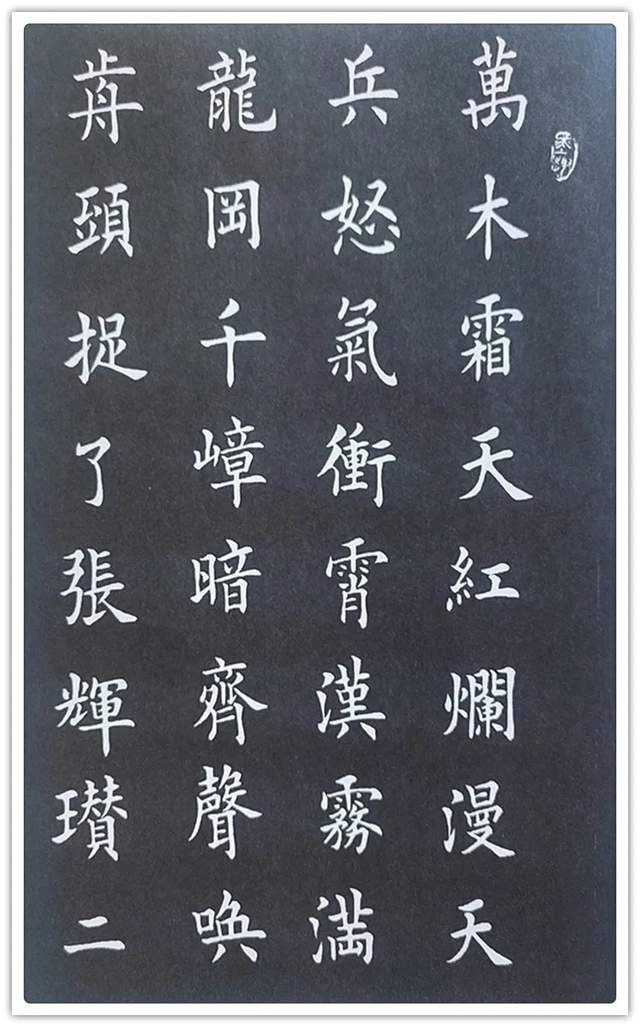 萬木霜天紅爛漫天
兵怒氣衝霄漢霧滿
龍岡千嶂暗齊聲喚
前頭捉了張輝瓚二